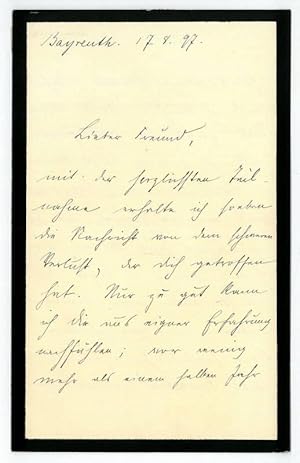 Bayreuth. 17. 8. 97.
Lieber Freund,
mit der herzlichsten Teil-
nahme erhalte ich soeben
die Nachricht von dem schweren
Verlust, der dich getroffen
hat. Nur zu gut kann
ich dir aus eigner Erfahrung
nachfühlen; vor wenig
mehr als einem halben Jahr